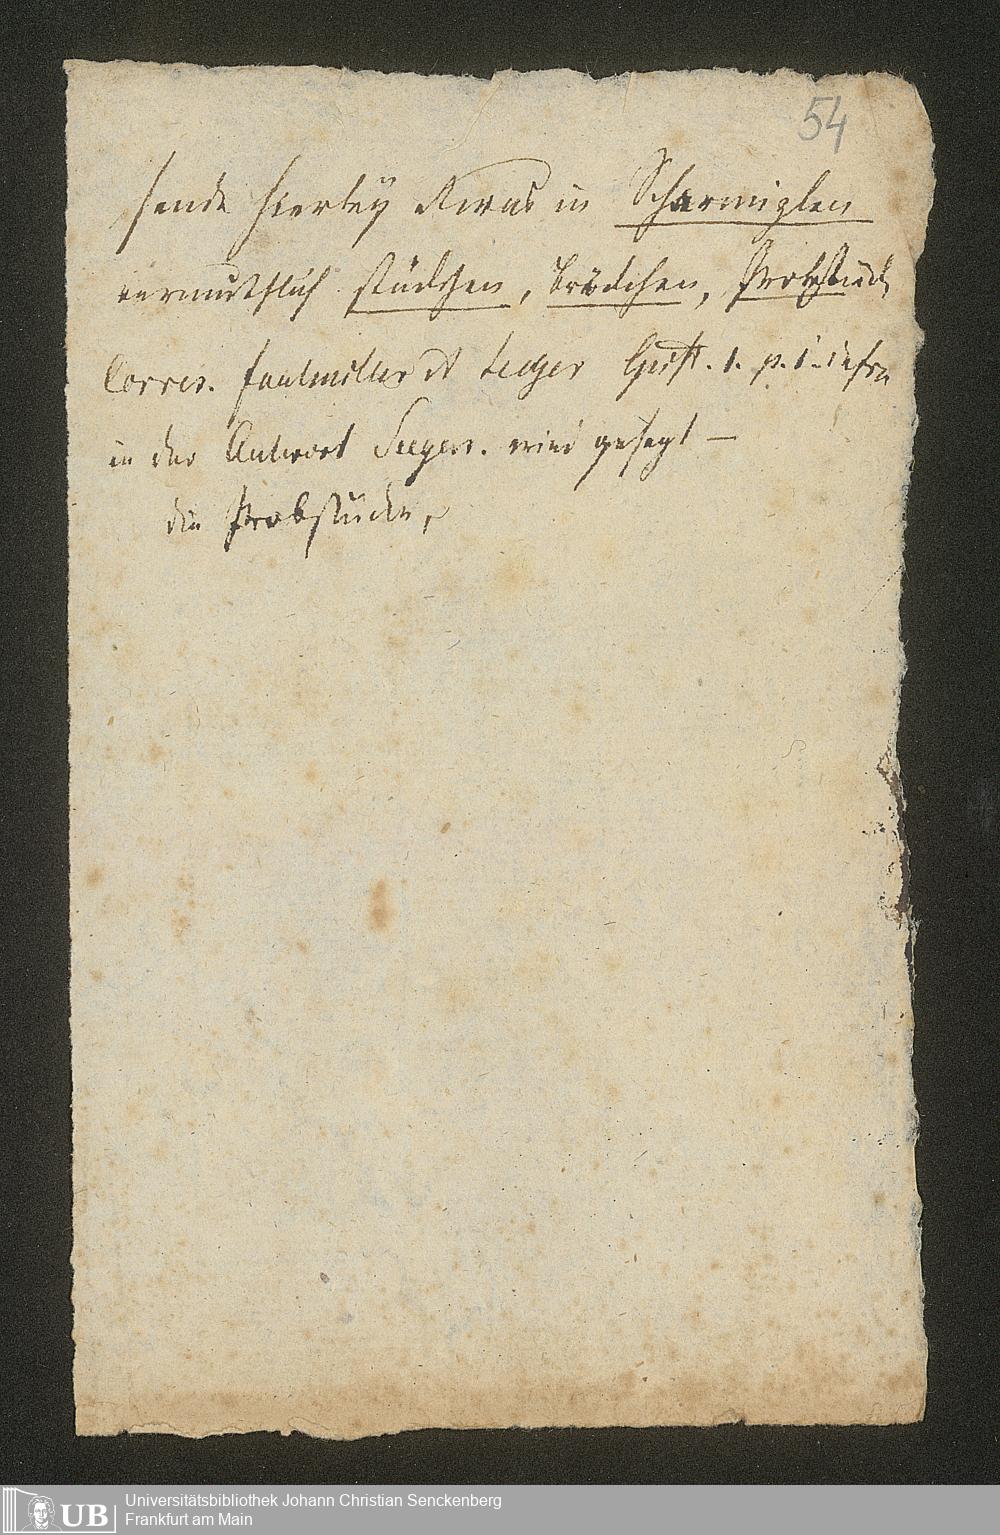 54
sende hierbey etwas in Scharmizlen
vermuthlich stückgen, brödchen, Probstück
Corres. Faulmiller et Seeger Hpst. 1. p. 1. infra
in der Antwort Seegers. wird gesagt —
die Probstücke,
UB Universitätsbibliothek Johann Christian Senckenberg
Frankfurt am Main